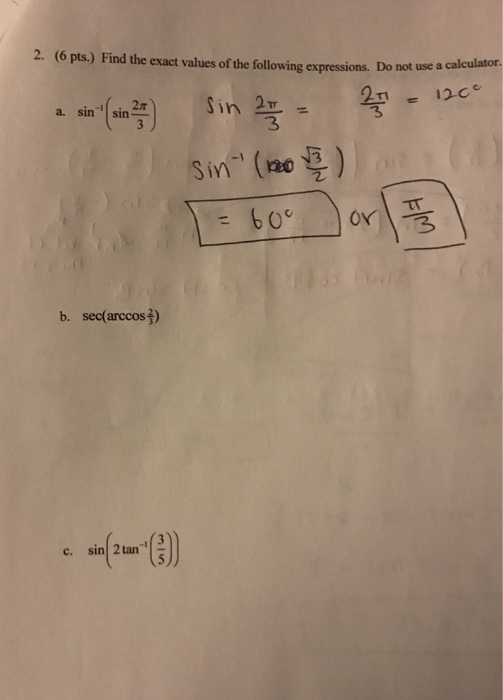 2. (6 pts.) Find the exact values of the following expressions. Do not use a calculator.
a. sin⁻¹(sin 2π/3) sin 2π/3 = 2π/3 = 120°
sin⁻¹ (√3/2)
= 60° or π/3
b. sec(arccos 2/3)
c. sin(2 tan⁻¹(3/5))